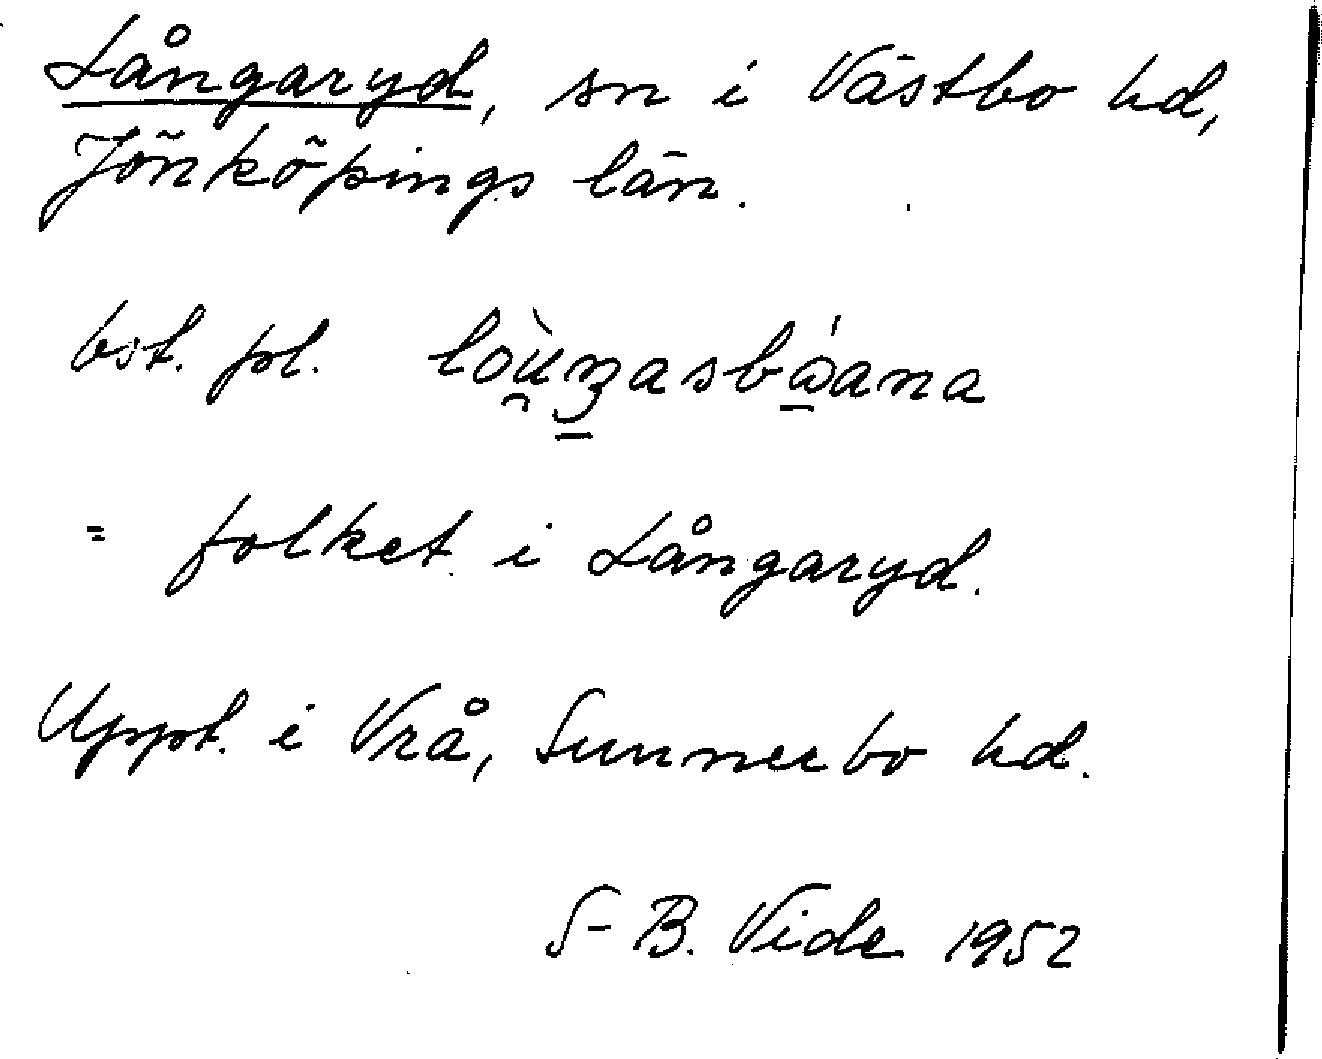 Långaryd, sn i Västbo hd,
Jönköpings län.
bst. pl.
= folket i Långaryd.
Uppt. i Vrå, Sunnerbo hd.
S-B. Vide 1952